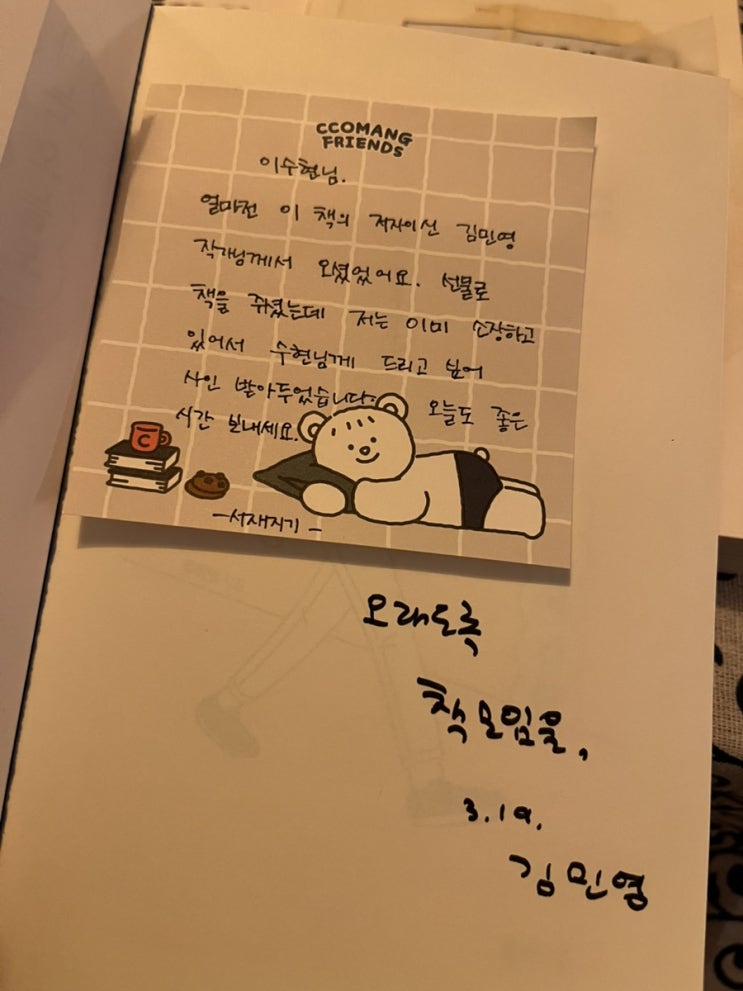 CCOMANG
FRIENDS
이수현님.
얼마전 이 책의 저자이신 김민영
작가님께서 오셨었어요. 선물로
책을 주셨는데 저는 이미 소장하고
있어서 수현님께 드리고 싶어
사인 받아두었습니다. 오늘도 좋은
시간 보내세요.
C
-서재지기-
오래도록
책모임을,
3.19.
김민영